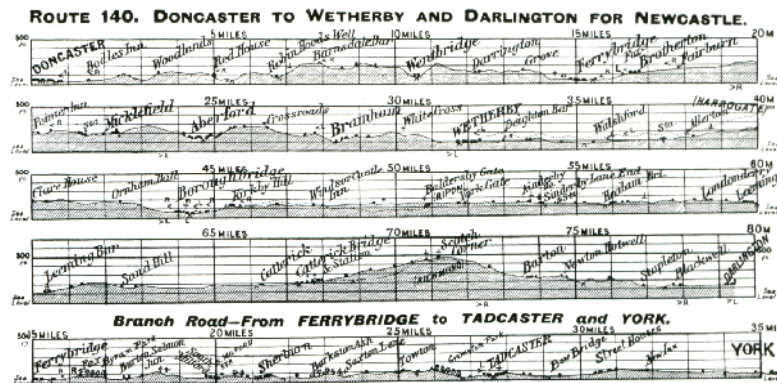 ROUTE 140. DONCASTER TO WETHERBY AND DARLINGTON FOR NEWCASTLE.
5 MILES 10 MILES 15 MILES 20 M
500 DONCASTER Bodles Inn Woodlands Red House Robin Hoods Well Barnsdale Bar Wentbridge Darrington Grove Ferrybridge Brotherton Fairburn
Sea Level
>R
25 MILES 30 MILES 35 MILES 40 M
Pointer Inn Sta. Micklefield Aberford Crossroads Bramham White Cross WETHERBY Deighton Bar Walshford Sta. Allerton (HARROGATE)
Sea Level
>L >L
45 MILES 50 MILES 55 MILES 60 M
Clare House Ornham Hall Boroughbridge Kirkby Hill Windsor Castle Inn Baldersby Gate (RIPON) York Gate Sinderby Lane End Healam Bri. Londonderry Leeming
Sea Level
>L
65 MILES 70 MILES 75 MILES 80 M
500 Leeming Bar Sand Hill Catterick Catterick Bridge & Station Scotch Corner (RICHMOND) Barton Newton Hotwell Stapleton Blackwell DARLINGTON
Sea Level
>R >R >L
Branch Road—From FERRYBRIDGE to TADCASTER and YORK.
15 MILES 20 MILES 25 MILES 30 MILES 35 M
Ferrybridge Byram Park Barton Salmon Inn South Milford Sherburn Barkston Ash Saxton Lane Towton Grimston Park TADCASTER Bow Bridge Street Houses New Inn YORK
Sea Level